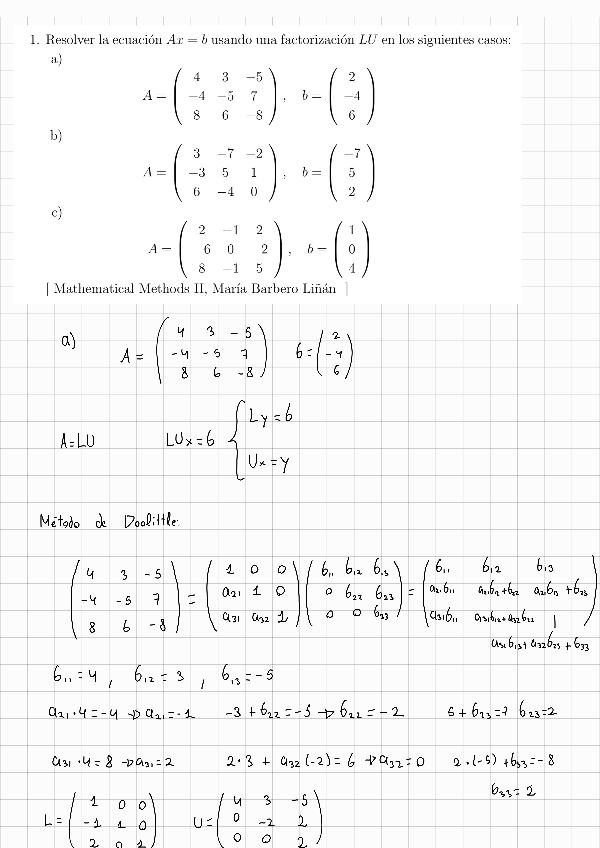 1. Resolver la ecuación Ax = b usando una factorización LU en los siguientes casos:
a)
A = ( 4 3 −5 ; −4 −5 7 ; 8 6 −8 ) , b = ( 2 ; −4 ; 6 )
b)
A = ( 3 −7 −2 ; −3 5 1 ; 6 −4 0 ) , b = ( −7 ; 5 ; 2 )
c)
A = ( 2 −1 2 ; 6 0 2 ; 8 −1 5 ) , b = ( 1 ; 0 ; 4 )
[ Mathematical Methods II, María Barbero Liñán ]
a) A = ( 4 3 -5 ; -4 -5 7 ; 8 6 -8 ) b = ( 2 ; -4 ; 6 )
A=LU LUx=b { Ly=b ; Ux=y
Método de Doolittle:
( 4 3 -5 ; -4 -5 7 ; 8 6 -8 ) = ( 1 0 0 ; a21 1 0 ; a31 a32 1 ) ( b11 b12 b13 ; 0 b22 b23 ; 0 0 b33 ) = ( b11 b12 b13 ; a21b11 a21b12+b22 a21b13+b23 ; a31b11 a31b12+a32b22 | a31b13+a32b23+b33
b11=4 , b12=3 , b13=-5
a21·4=-4 → a21=-1 -3+b22=-5 → b22=-2 5+b23=7 b23=2
a31·4=8 → a31=2 2·3+a32(-2)=6 → a32=0 2·(-5)+b33=-8
b33=2
L= ( 1 0 0 ; -1 1 0 ; 2 0 1 ) U= ( 4 3 -5 ; 0 -2 2 ; 0 0 2 )